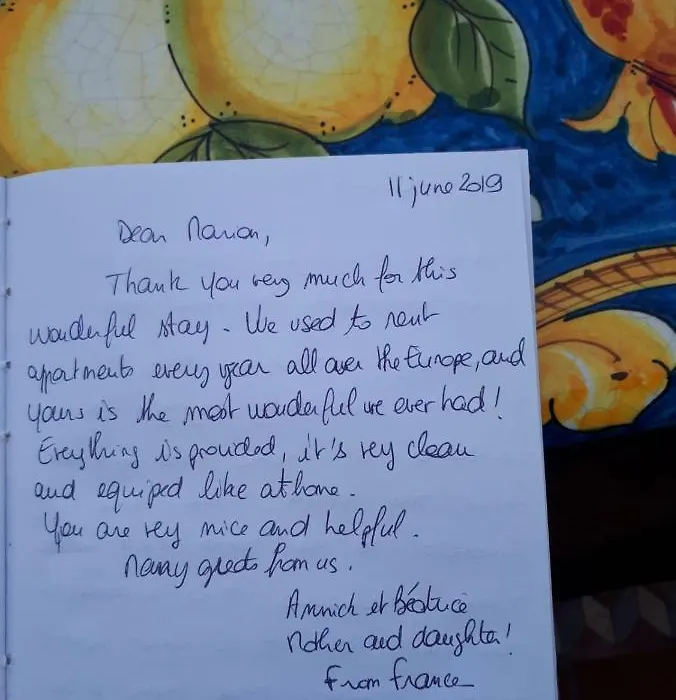 11 june 2019
Dear Marion,
Thank you very much for this
wonderful stay. We used to rent
appartments every year all over the Europe, and
yours is the most wonderful we ever had!
Everything is provided, it's very clean
and equiped like at home.
You are very nice and helpful.
Many greets from us.
Annick et Béatrice
Mother and daughter!
From France